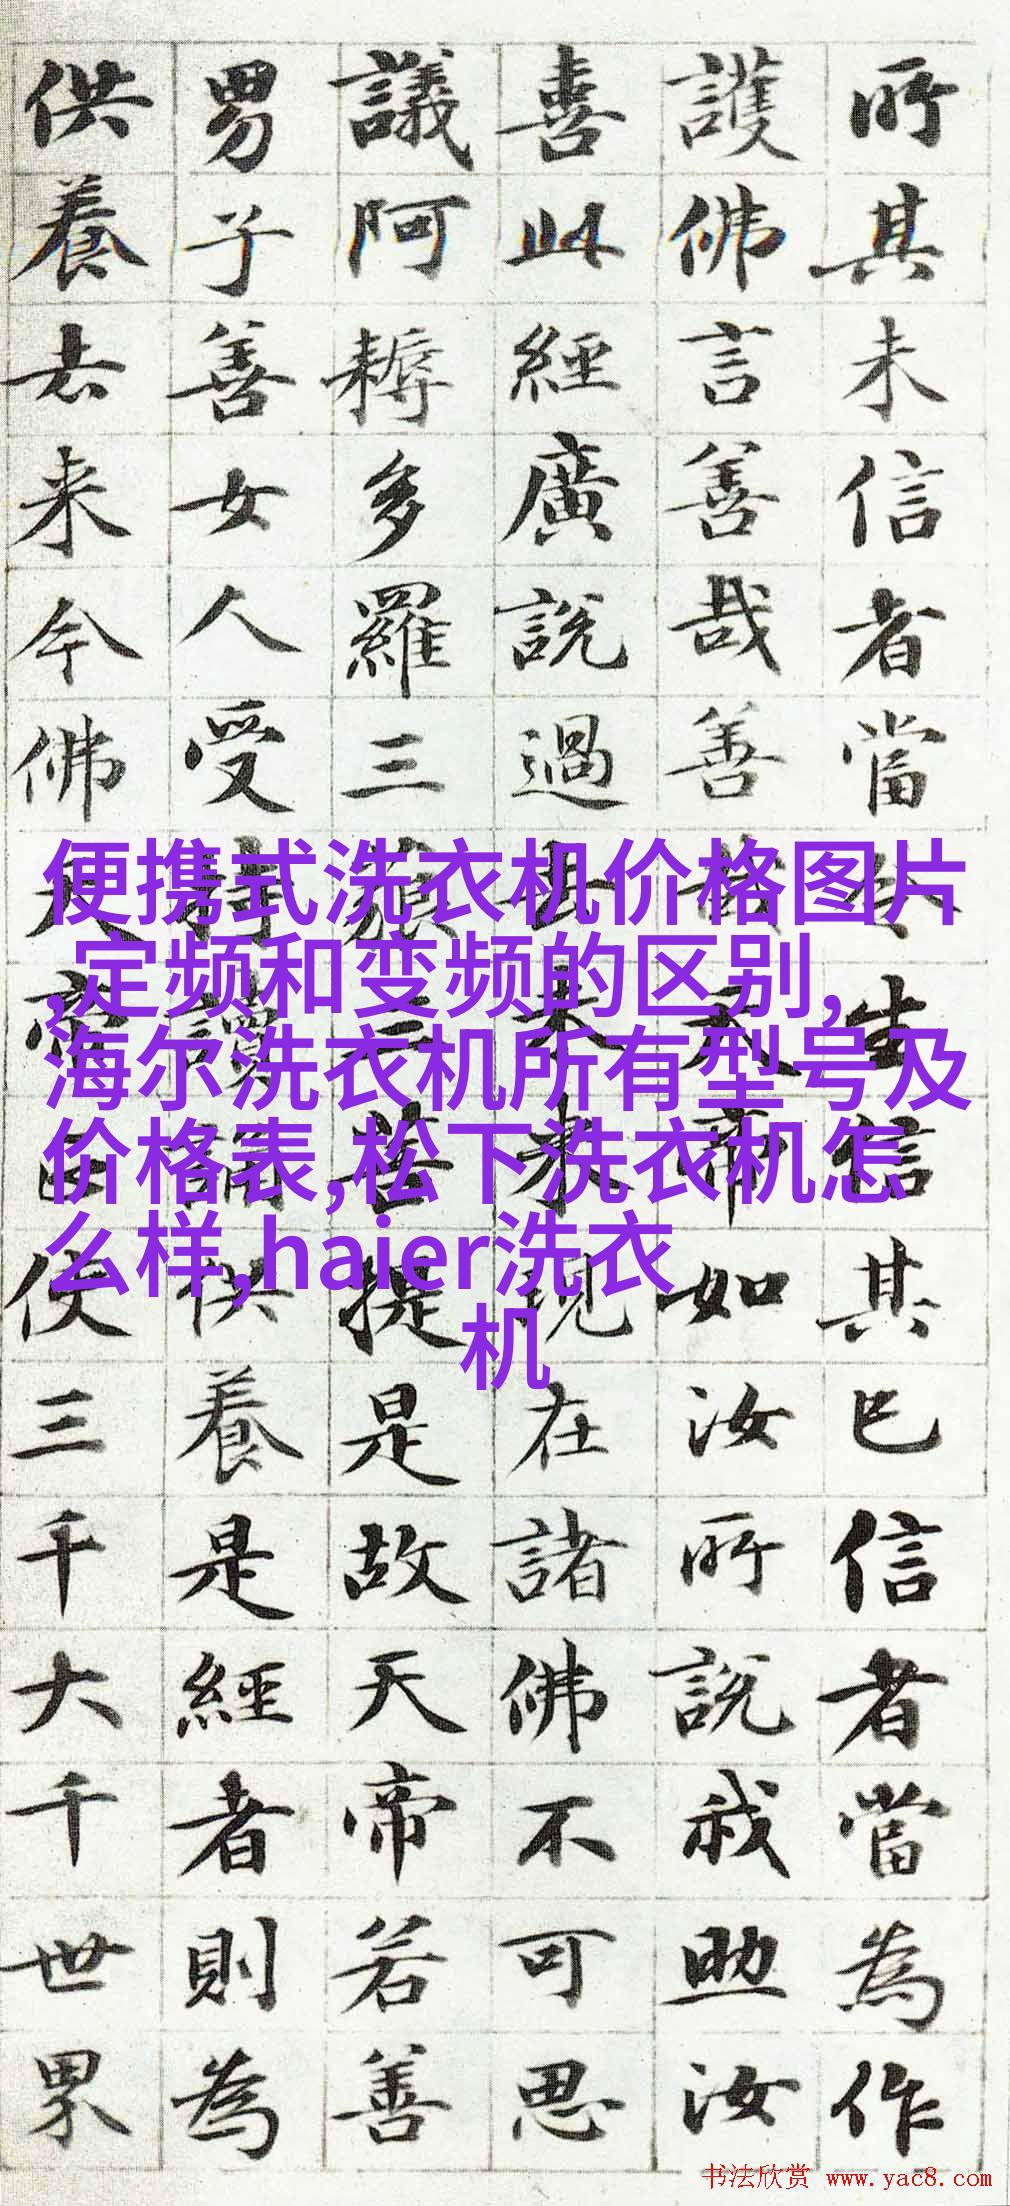 所其未信者當令生信其已信者當為作
護佛言善哉善哉天帝如汝所說我助汝
喜此經廣說過去未來現在諸佛不可思
議阿耨多羅三藐三菩提是故天帝若善
男子善女人受持讀誦供養是經者則為
供養去来今佛天帝正使三千大千世界
便携式洗衣机价格图片
,定频和变频的区别,
海尔洗衣机所有型号及
价格表,松下洗衣机怎
么样,haier洗衣
机
书法欣赏 www.yac8.com